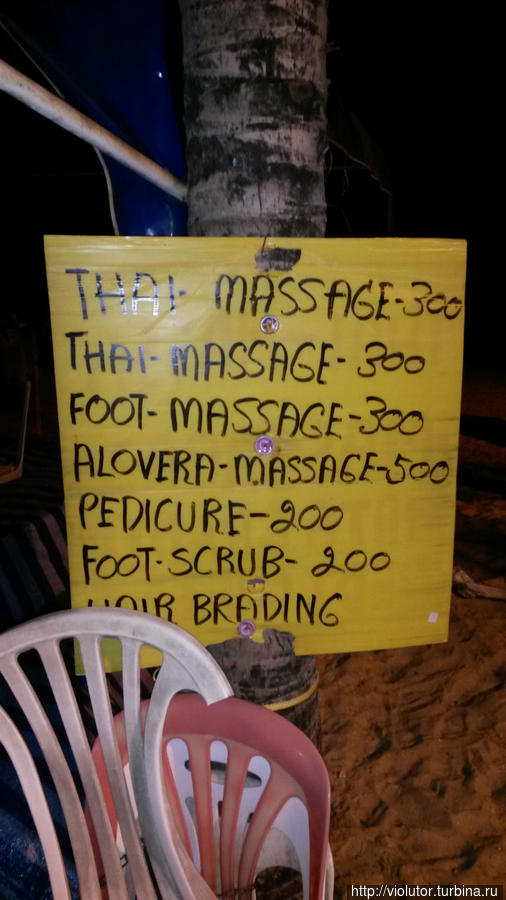 THAI- MASSAGE-300
THAI-MASSAGE- 300
FOOT- MASSAGE-300
ALOVERA-MASSAGE-500
PEDICURE-200
FOOT-SCRUB- 200
HAIR BRADING
http://violutor.turbina.ru